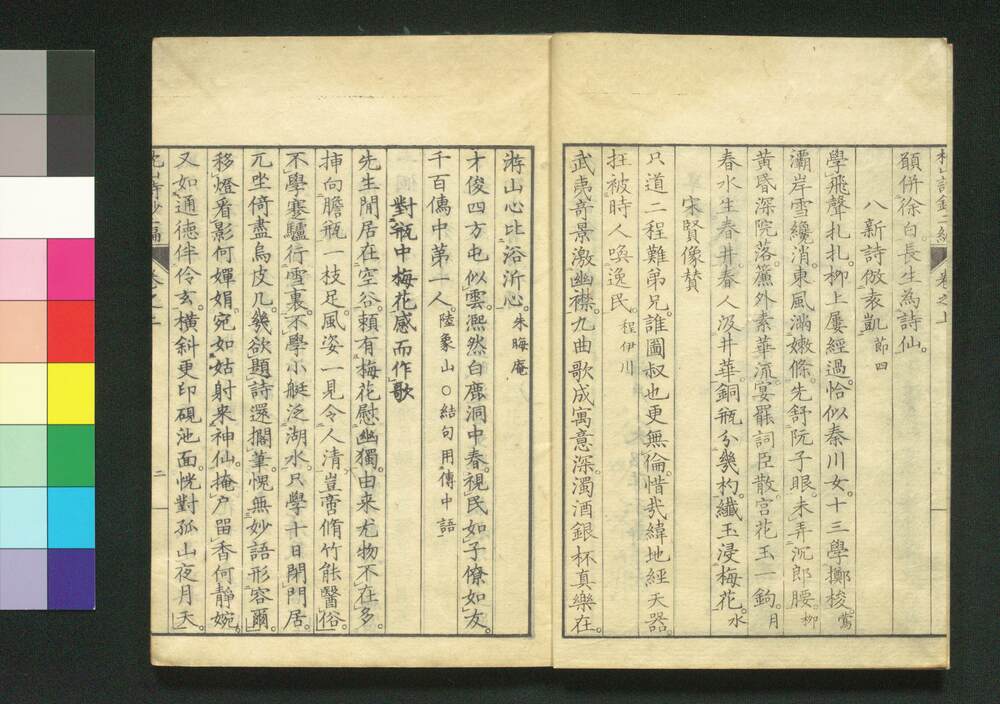 願併徐白長生為詩仙。
八新詩倣袁凱 節四
學飛聲扎扎。柳上屢經過。恰似秦川女。十三學擲梭。鶯
灞岸雪纔消。東風滿嫩條。先舒阮子眼。未弄沉郎腰。柳
黃昏深院落。簾外素華流。宴罷詞臣散。宮花玉一鉤。月
春水生春井。春人汲井華。銅瓶分幾杓。纖玉浸梅花。水
宋賢像贊
只道二程難弟兄。誰圖叔也更無倫。惜哉緯地經天器。
抂被時人喚逸民。程伊川
武夷奇景激幽襟。九曲歌成寓意深。濁酒銀杯真樂在。
游山心比浴沂心。朱晦庵
才俊四方屯似雲。凞然白鹿洞中春。視民如子僚如友。
千百儔中第一人。陸象山 ○結句用傳中語
對瓶中梅花感而作歌
先生閒居在空谷。賴有梅花慰幽獨。由来尤物不在多。
挿向膽瓶一枝足。風姿一見令人清。豈啻脩竹能醫俗。
不學蹇驢行雪裏。不學小艇泛湖水。只學十日閉門居。
兀坐倚盡烏皮几。幾欲題詩還擱筆。愧無妙語形容爾。
移燈看影何嬋娟。宛如姑射来神仙。掩户留香何静婉。
又如通德伴伶玄。橫斜更印硯池面。恍對孤山夜月天。
二